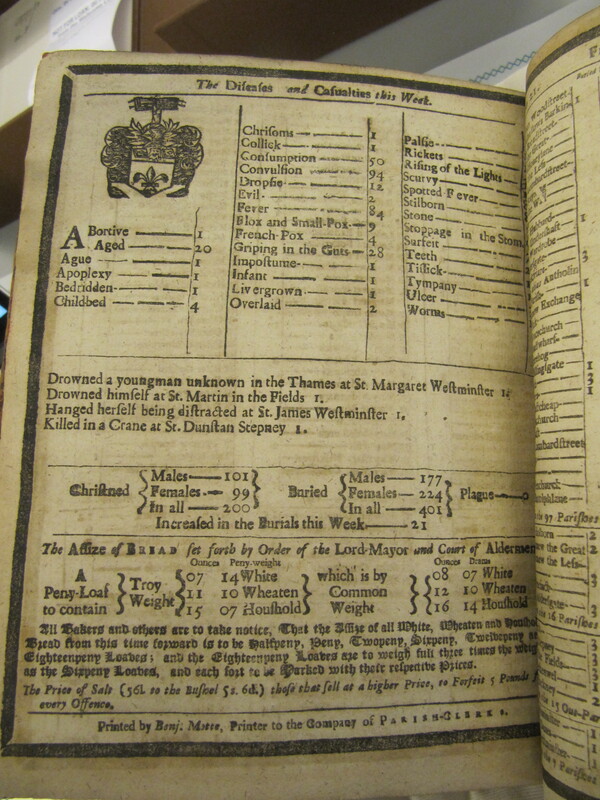 The Diseases and Casualties this Week.
Abortive 1
Aged 20
Ague 1
Apoplexy 1
Bedridden 1
Childbed 4
Chrisoms 1
Collick 1
Consumption 50
Convulsion 94
Dropsie 12
Evil 2
Fever 84
Flox and Small-Pox 9
French-Pox 4
Griping in the Guts 28
Impostume 1
Infant 1
Livergrown 1
Overlaid 2
Palsie
Rickets
Rising of the Lights
Scurvy
Spotted Fever
Stilborn
Stone
Stoppage in the Stom
Surfeit
Teeth
Tissick
Tympany
Ulcer
Worms
Drowned a youngman unknown in the Thames at St. Margaret Westminster 1.
Drowned himself at St. Martin in the Fields 1.
Hanged herself being distracted at St. James Westminster 1.
Killed in a Crane at St. Dunstan Stepney 1.
Christned Males 101 Females 99 In all 200
Buried Males 177 Females 224 In all 401
Plague 0
Increased in the Burials this Week 21
The Assize of BREAD set forth by Order of the Lord-Mayor and Court of Aldermen
Ounces Peny-weight Ounces Drams
A Peny-Loaf to contain Troy Weight
07 14 White
11 10 Wheaten
15 07 Houshold
which is by Common Weight
08 07 White
12 10 Wheaten
16 14 Houshold
All Bakers and others are to take notice, That the Assize of all White, Wheaten and Houshold
Bread from this time forward is to be Halfpeny, Peny, Twopeny, Sixpeny, Twelvepeny
Eighteenpeny Loaves; and the Eighteenpeny Loaves are to weigh full three times the weig
as the Sixpeny Loaves, and each sort to be Marked with their respective Prices.
The Price of Salt (56l. to the Bushel 5s. 6d.) those that sell at a higher Price, to Forfeit 5 Pounds
every Offence.
Printed by Benj. Motte, Printer to the Company of PARISH-CLERKS.